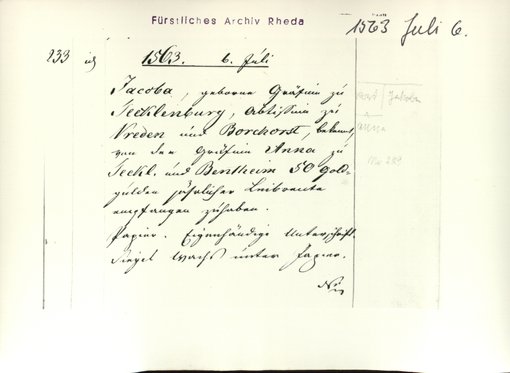 Fürstliches Archiv Rheda
1563 Juli 6.
233
1563. 6. Juli
Jacoba, geborne Gräfin zu
Tecklenburg, Abtissin zu
Vreden und Borchorst, bekennt,
von der Gräfin Anna zu
Teckl. und Bentheim 50 Gold-
gulden jährlicher Leibrente
empfangen zu haben.
Papier. Eigenhändige Unterschrift.
Siegel Wachs unter Papier.